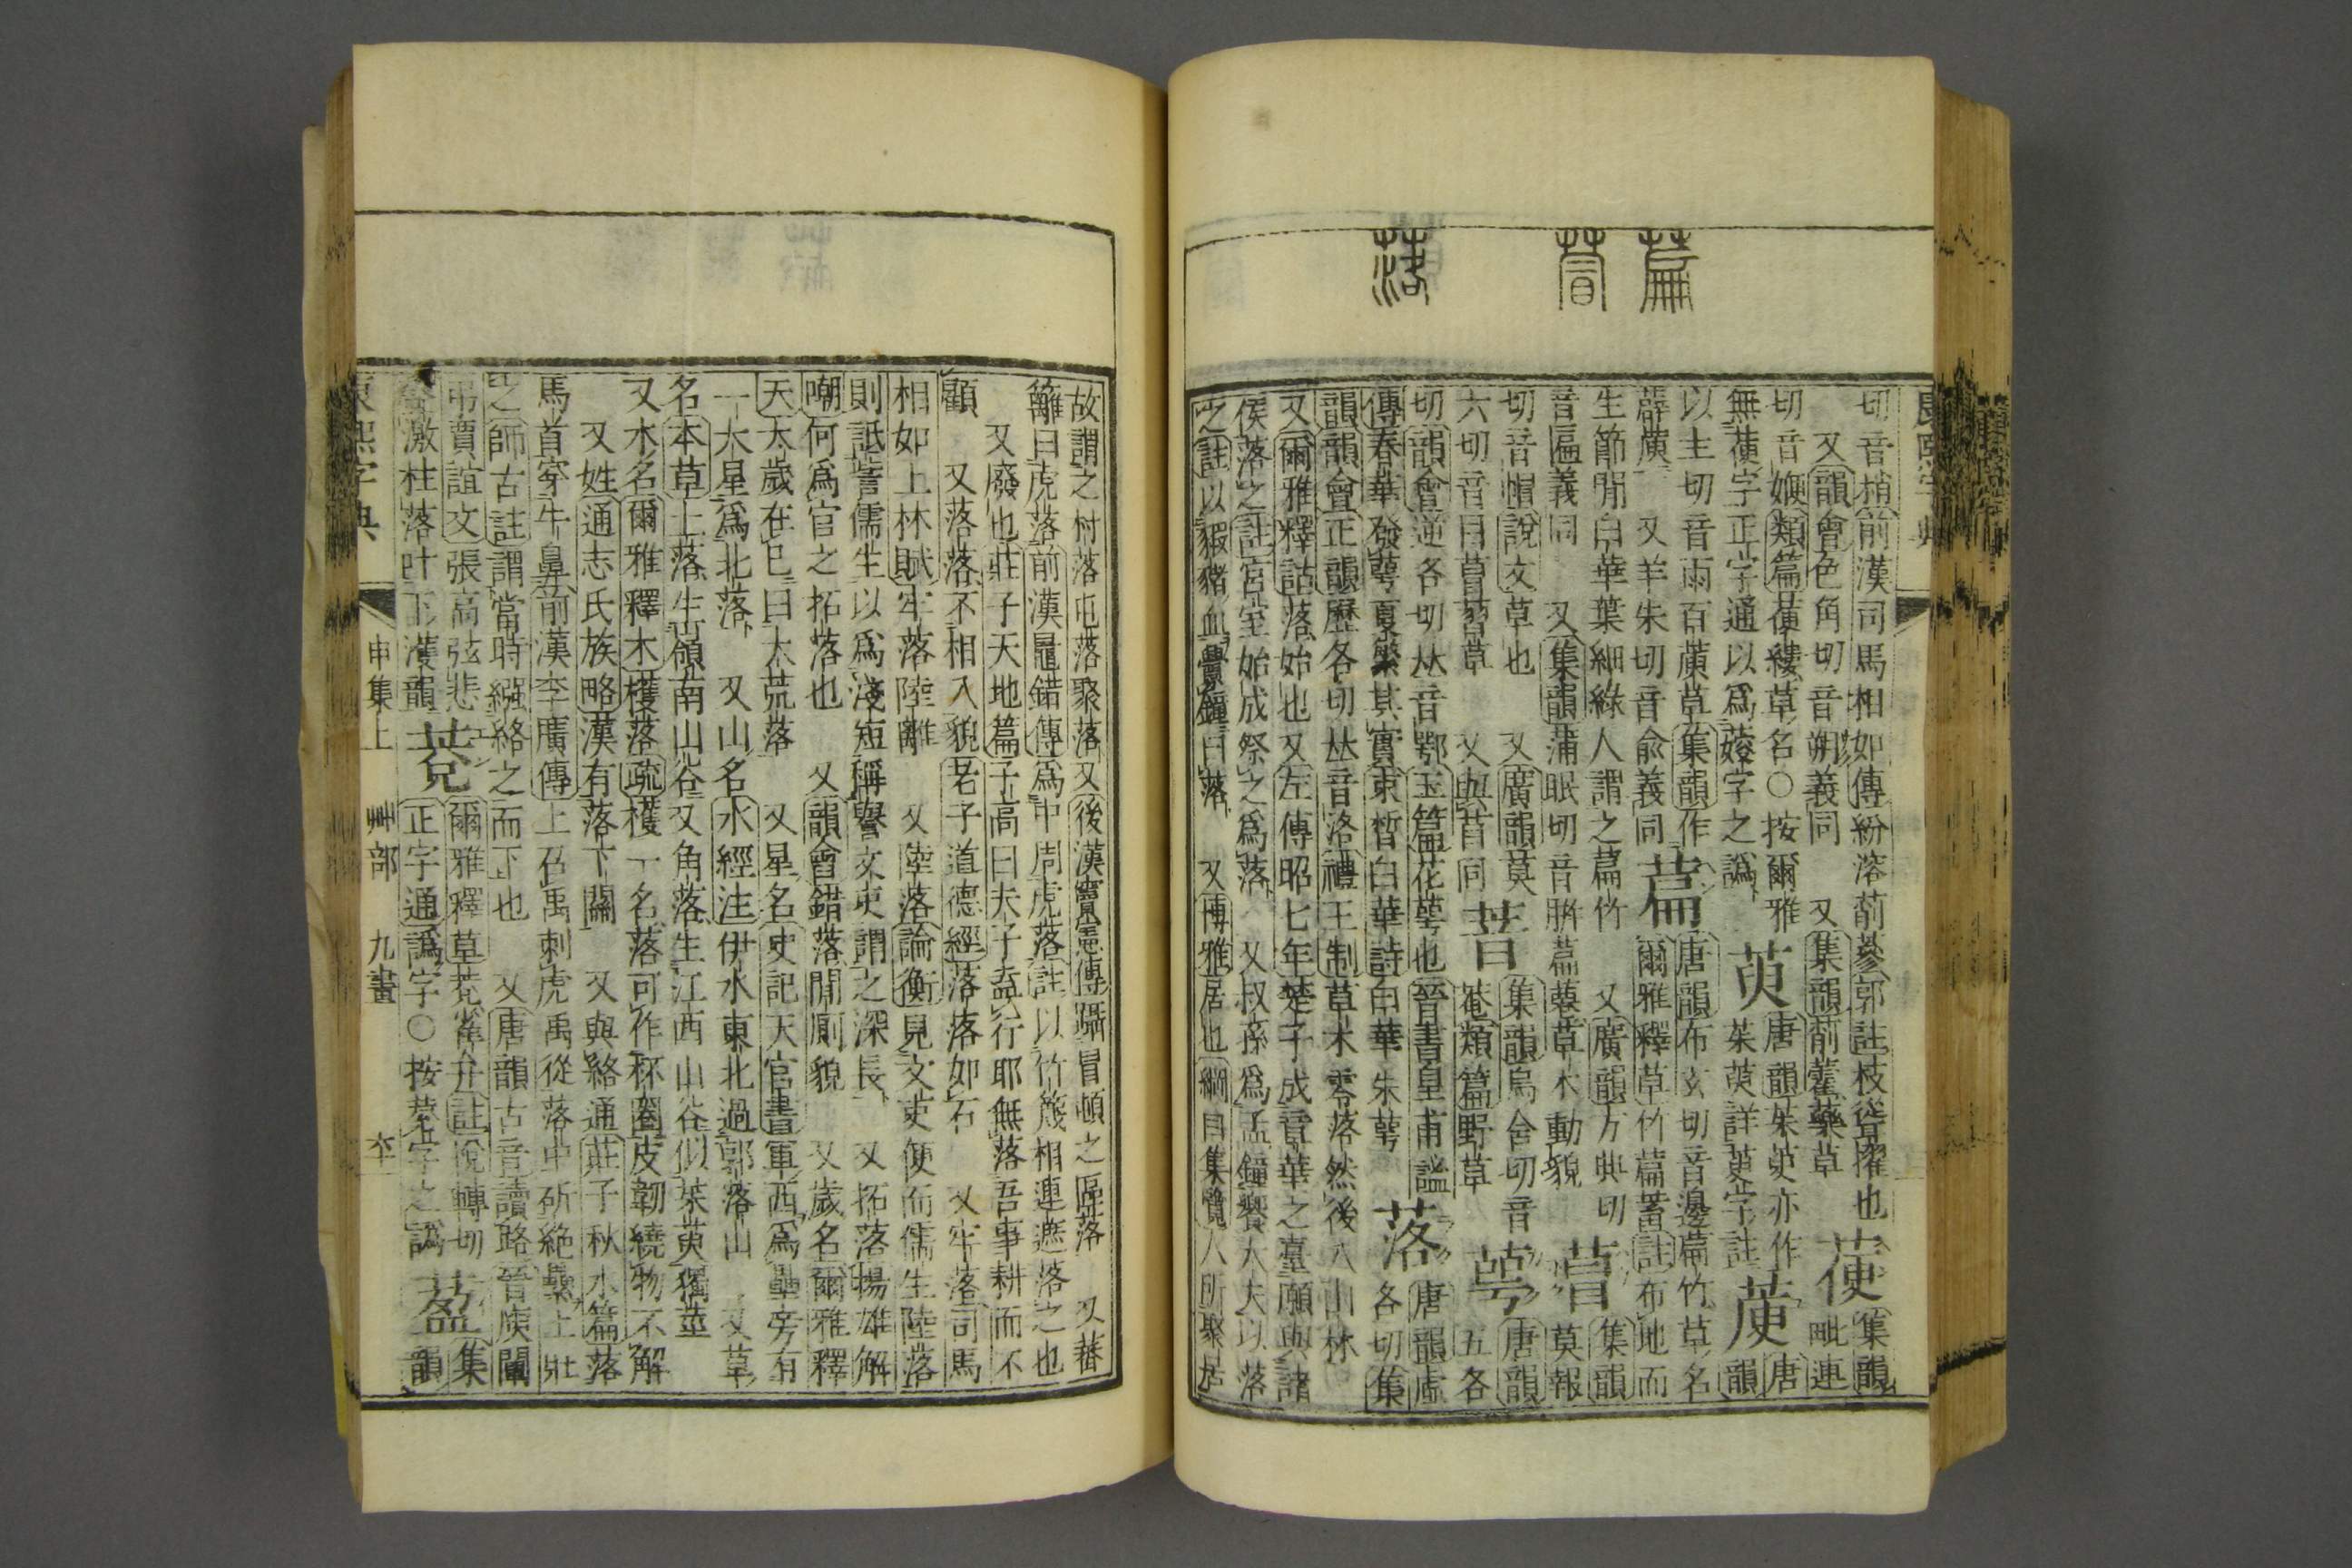 萹 萺 落
切音梢前漢司馬相如傳紛溶萷蔘郭註枝竦擢也
又韻會色角切音朔義同 又集韻萷藋藥草
㛹集韻毗連
切音㛹類篇㛹縷草名○按爾雅
無㛹字正字通以爲蔆字之譌
萸唐韻
茱萸亦作萸
以主切音雨百蕍草集韻作
萹唐韻布玄切音邊萹竹草名
薜蕍 又羊朱切音兪義同
爾雅釋草竹萹蓄註布地而
生節閒白華葉細綠人謂之萹竹 又廣韻方典切
音匾義同 又集韻蒲眠切音腁萹蔉草木動貌
萺集韻莫報
切音帽說文草也 又廣韻莫
六切音目萺蓿草 又與苜同
萻集韻烏含切音
菴類篇野草
萼唐韻五各
切韻會逆各切𠀤音鄂玉篇花萼也晉書皇甫謐
傳春華發萼夏繁其實束皙白華詩白華朱萼
落唐韻盧各切集
韻韻會正韻歷各切𠀤音洛禮王制草木零落然後入山林
又爾雅釋詁落始也又左傳昭七年楚子成章華之臺願與諸
侯落之註宮室始成祭之爲落 又叔孫爲孟鐘饗大夫以落
之註以豭豬血釁鐘曰落 又博雅居也綱目集覽人所聚居
故謂之村落屯落聚落又後漢竇憲傳躡冒頓之區落 又藩
籬曰虎落前漢鼂錯傳爲中周虎落註以竹篾相連遮落之也
又廢也莊子天地篇子高曰夫子盍行耶無落吾事耕而不
顧 又落落不相入貌老子道德經落落如石 又牢落司馬
相如上林賦牢落陸離 又陸落論衡見文吏便而儒生陸落
則詆訾儒生以爲淺短稱譽文吏謂之深長 又拓落揚雄解
嘲何爲官之拓落也 又韻會錯落閒廁貌 又歲名爾雅釋
天太歲在巳曰大荒落 又星名史記天官書軍西爲壘旁有
一大星爲北落 又山名水經注伊水東北過郭落山 又草
名本草土落生嶺南山谷又角落生江西山谷似茱萸獨莖
又木名爾雅釋木檴落疏檴一名落可作杯圈皮韌繞物不解
又姓通志氏族略漢有落下閎 又與絡通莊子秋水篇落
馬首穿牛鼻前漢李廣傳上召禹刺虎禹從落中斫絕纍上壯
之師古註謂當時纒絡之而下也 又唐韻古音讀路晉庾闡
弔賈誼文張高弦悲
激柱落叶下濩韻
萒爾雅釋草萒雀弁註悅轉切
正字通譌字○按萒字之譌
葐集韻
康熙字典 申集上 艸部 九畫
康熙字典